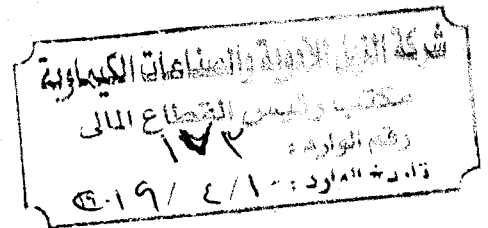 شركة النيل للأدوية والصناعات الكيماوية
مكتب رئيس القطاع المالى
رقم الوارد : ١٧٢
تاريخ الوارد : ١٠ / ٤ / ٢٠١٩